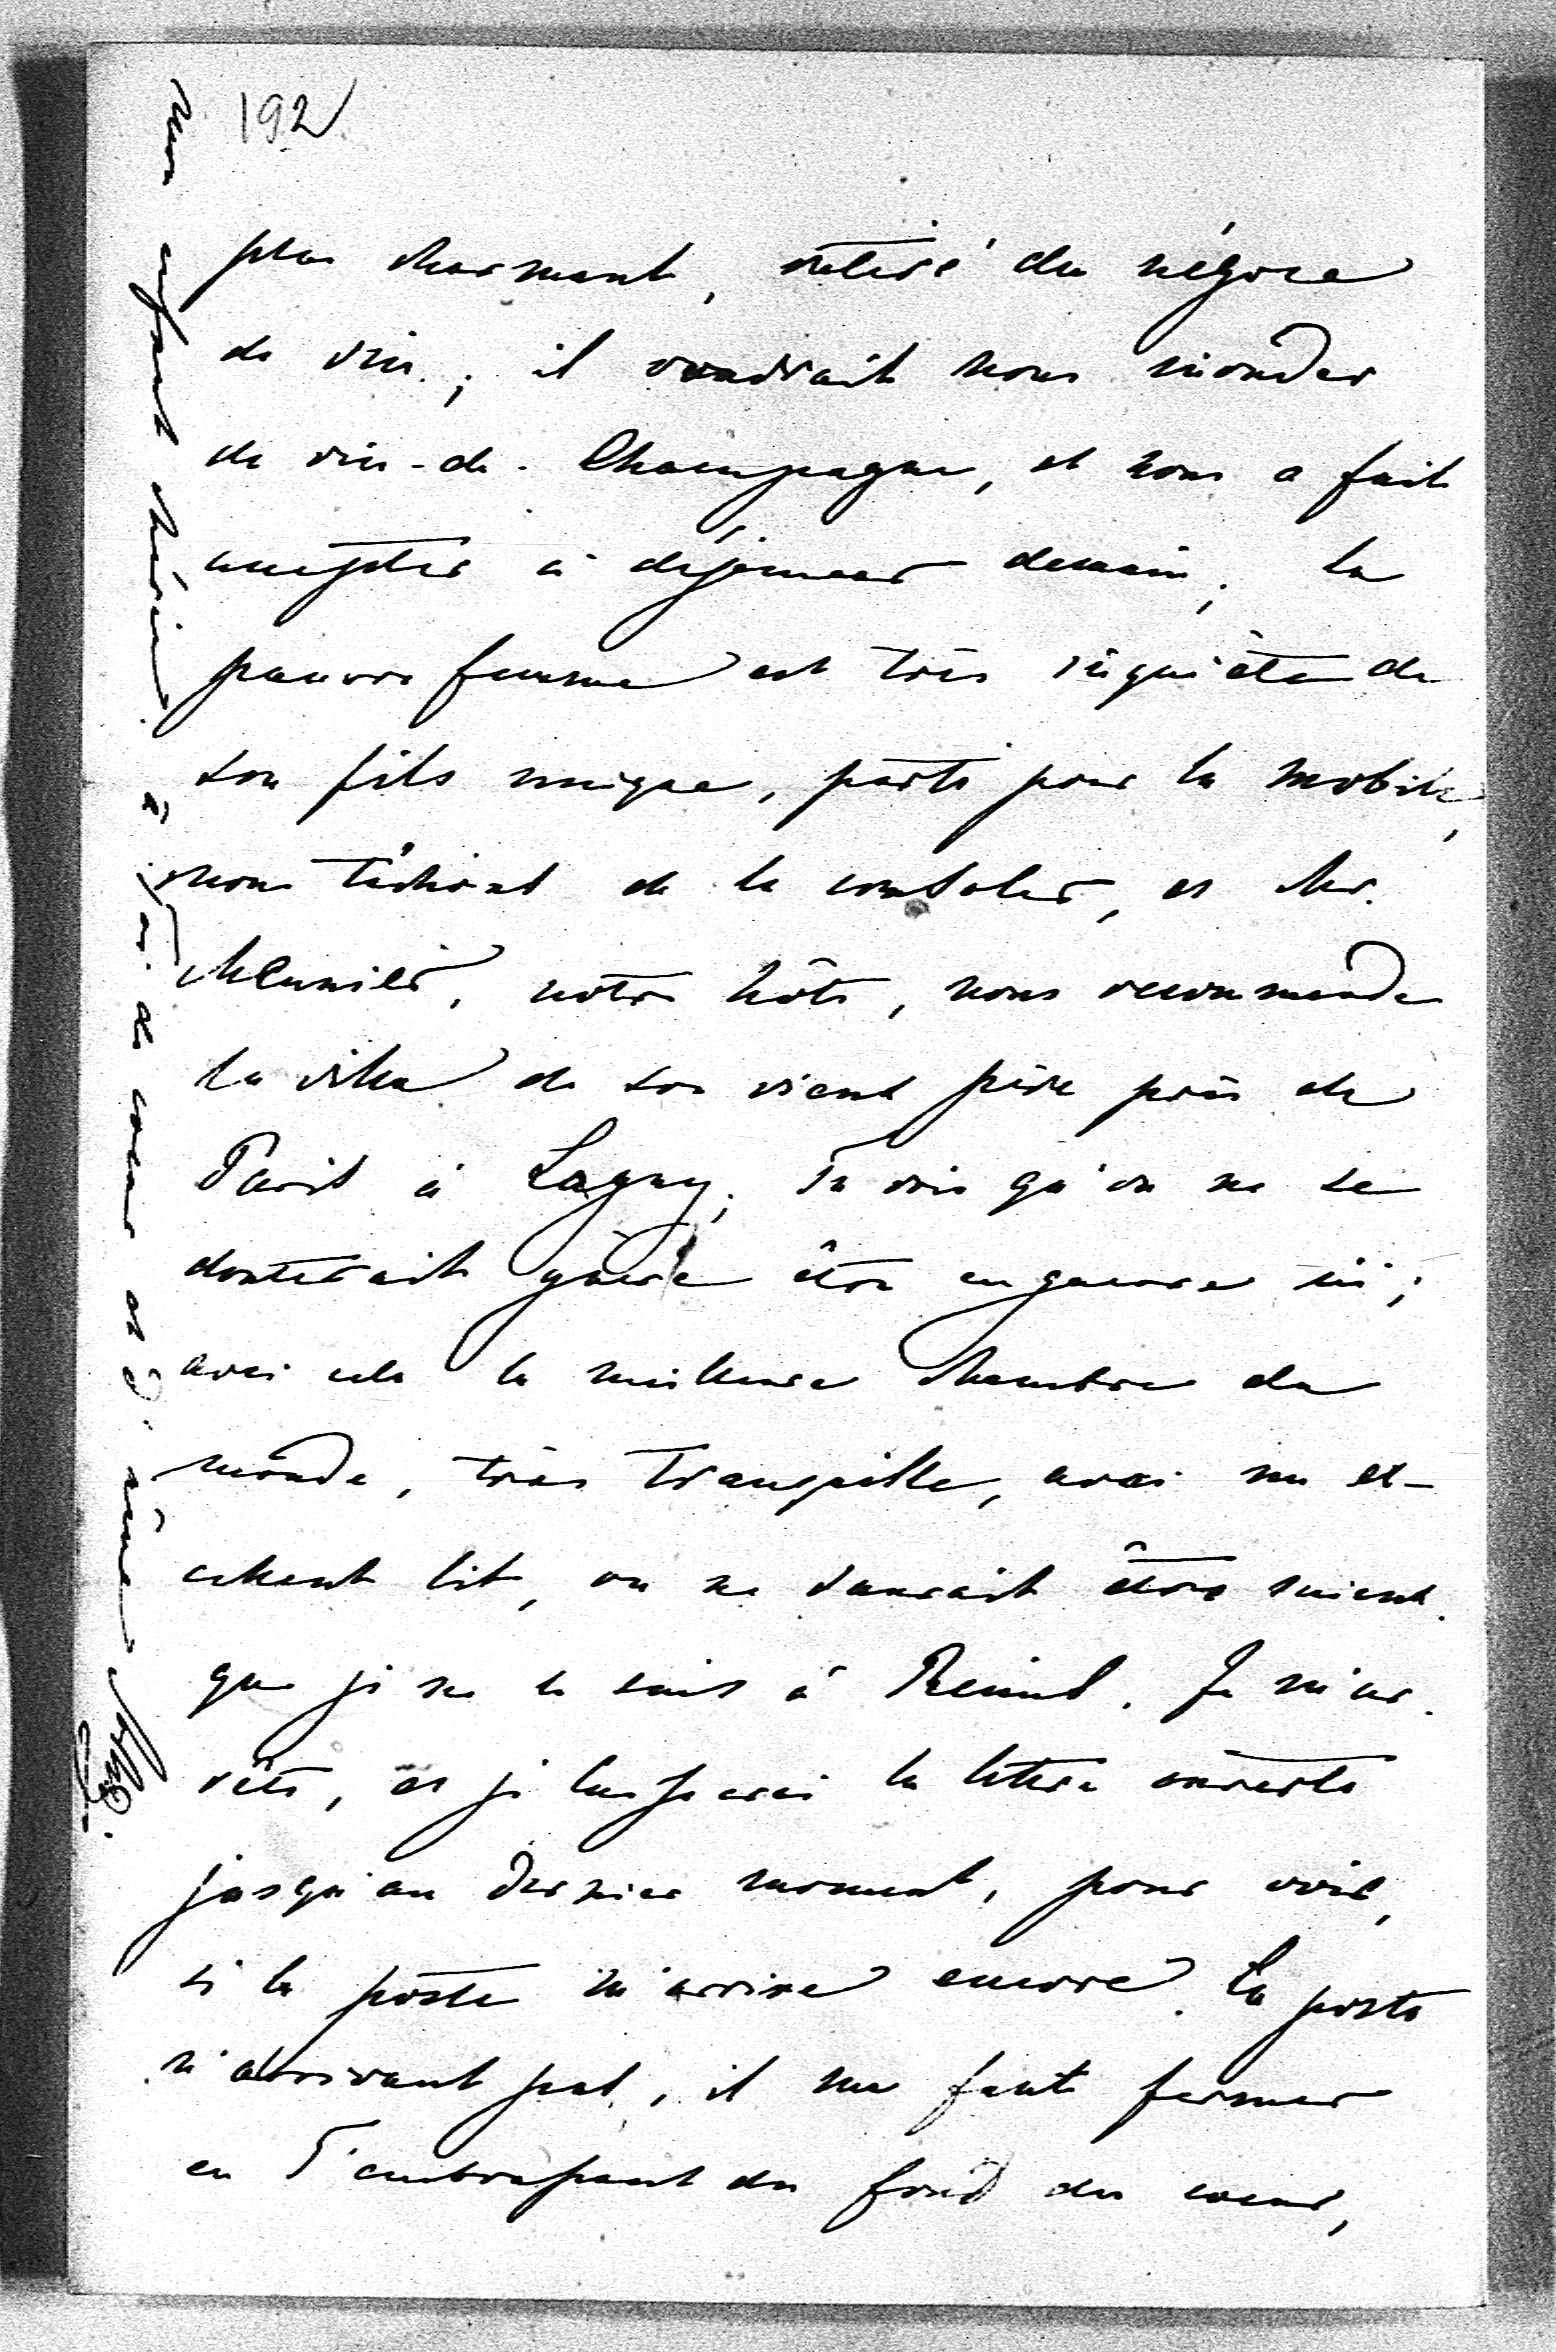 192
plus charmant, retiré du négoce
de vin ; il voudrait nous inonder
de vin-de-Champagne, et nous a fait
accepter à déjeuner demain ; la
pauvre femme est très inquiète de
son fils unique, parti pour la mobile,
nous tâchons de la consoler, et Mr.
Meunier, notre hôte, nous recommande
la villa de son vieux père près de
Paris à Lagny ; Tu vois qu'on ne se
douterait guère être en guerre ici ;
avec cela la meilleure chambre du
monde, très tranquille, avec un ex-
cellent lit, on ne saurait être mieux
que je ne le suis à Reims. Je m'ar-
rête, et je laisserai la lettre ouverte
jusqu'au dernier moment, pour voir,
si la poste m'arrive encore. La poste
n'arrivant pas, il me faut fermer
en T'embrassant du fond du coeur,
mon enfant chérie. à Toi de coeur et d'âme